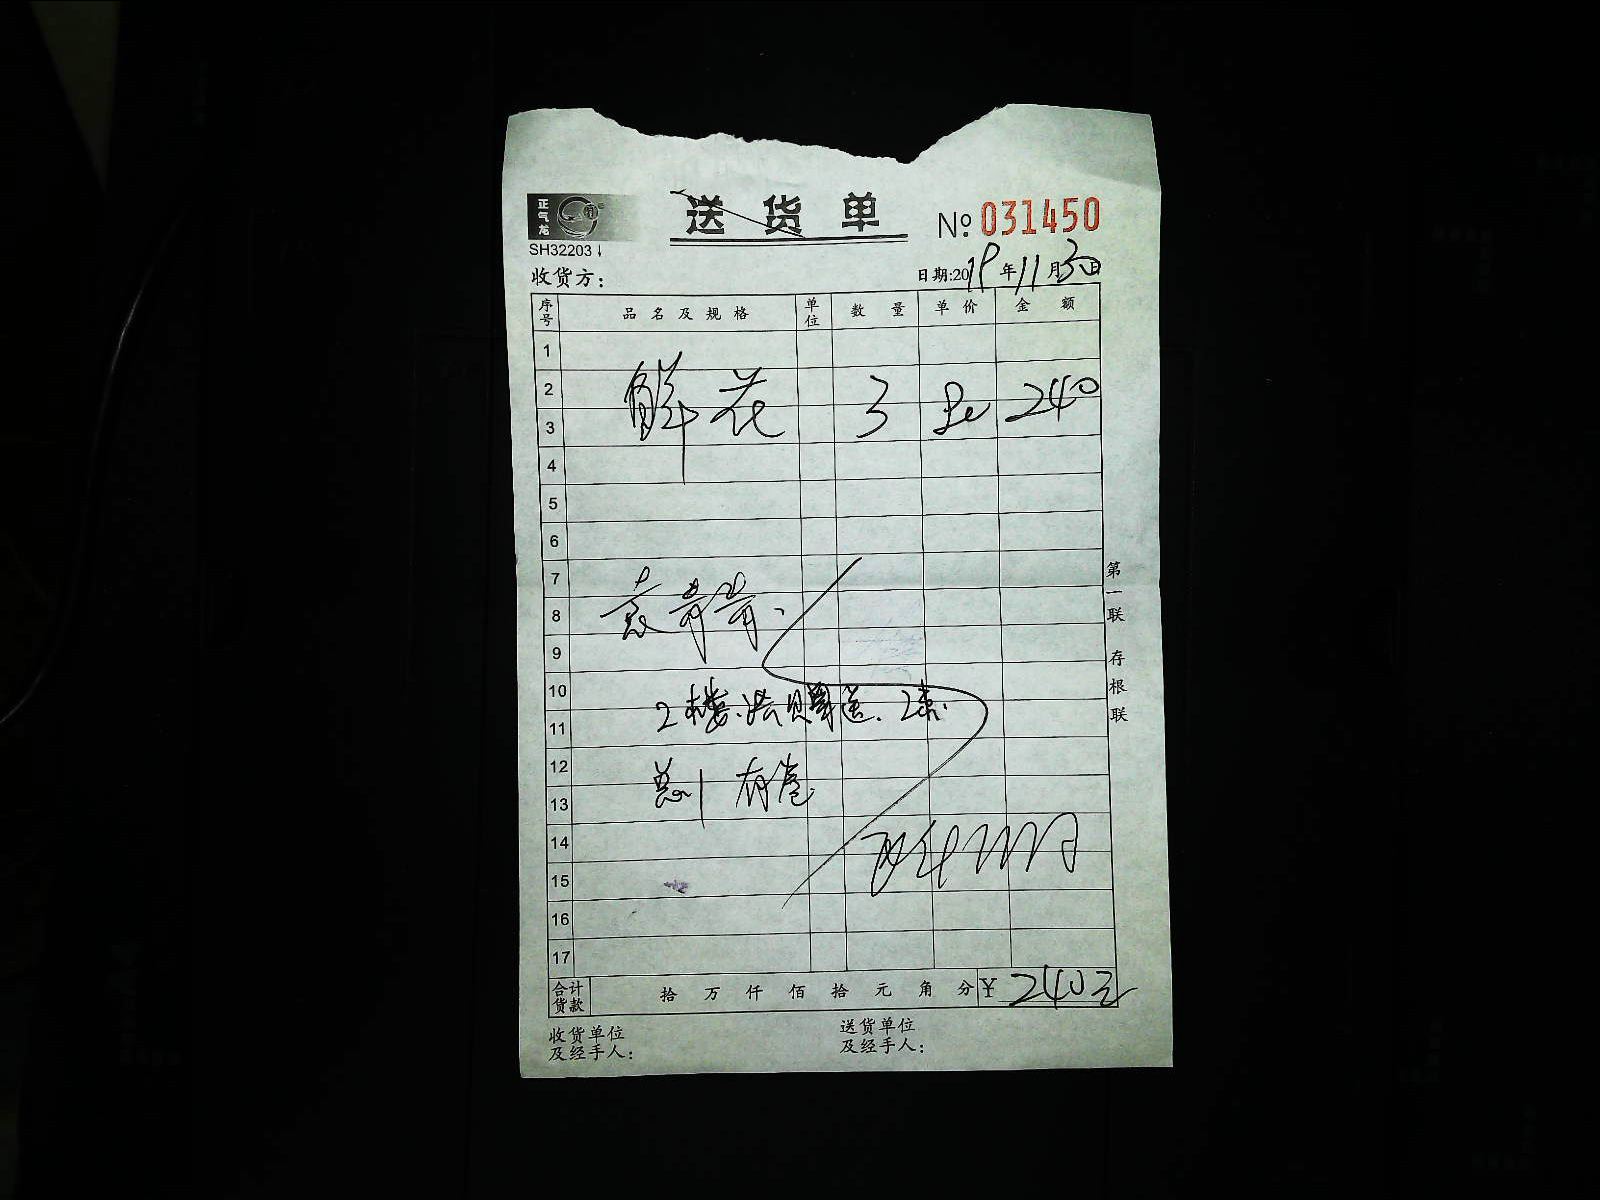 正气龙
送货单
№ 031450
SH32203
收货方：
日期:2019年11月30日
序号 品名及规格 单位 数量 单价 金额
1
2
鲜花 3 80 240
3
4
5
6
7
8
9
10
2楼
11
12
13
14
15
16
17
合计货款 拾 万 仟 佰 拾 元 角 分 ¥ 240元
收货单位及经手人：
送货单位及经手人：
第一联 存根联